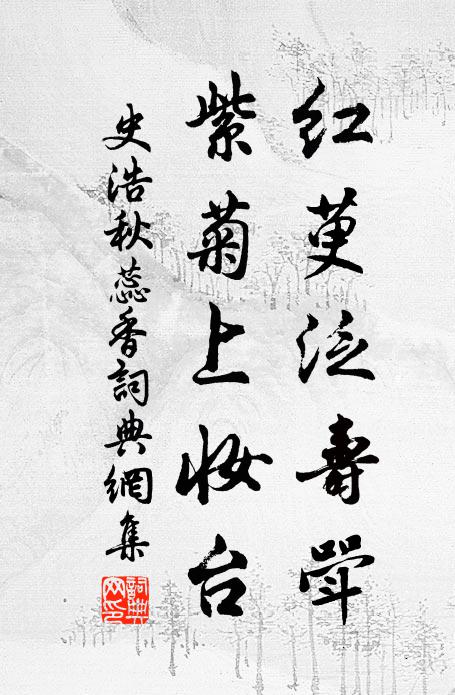 红萸泛壽斝
紫菊上妆台
史浩秋蕊香詞典網集
詞典网印